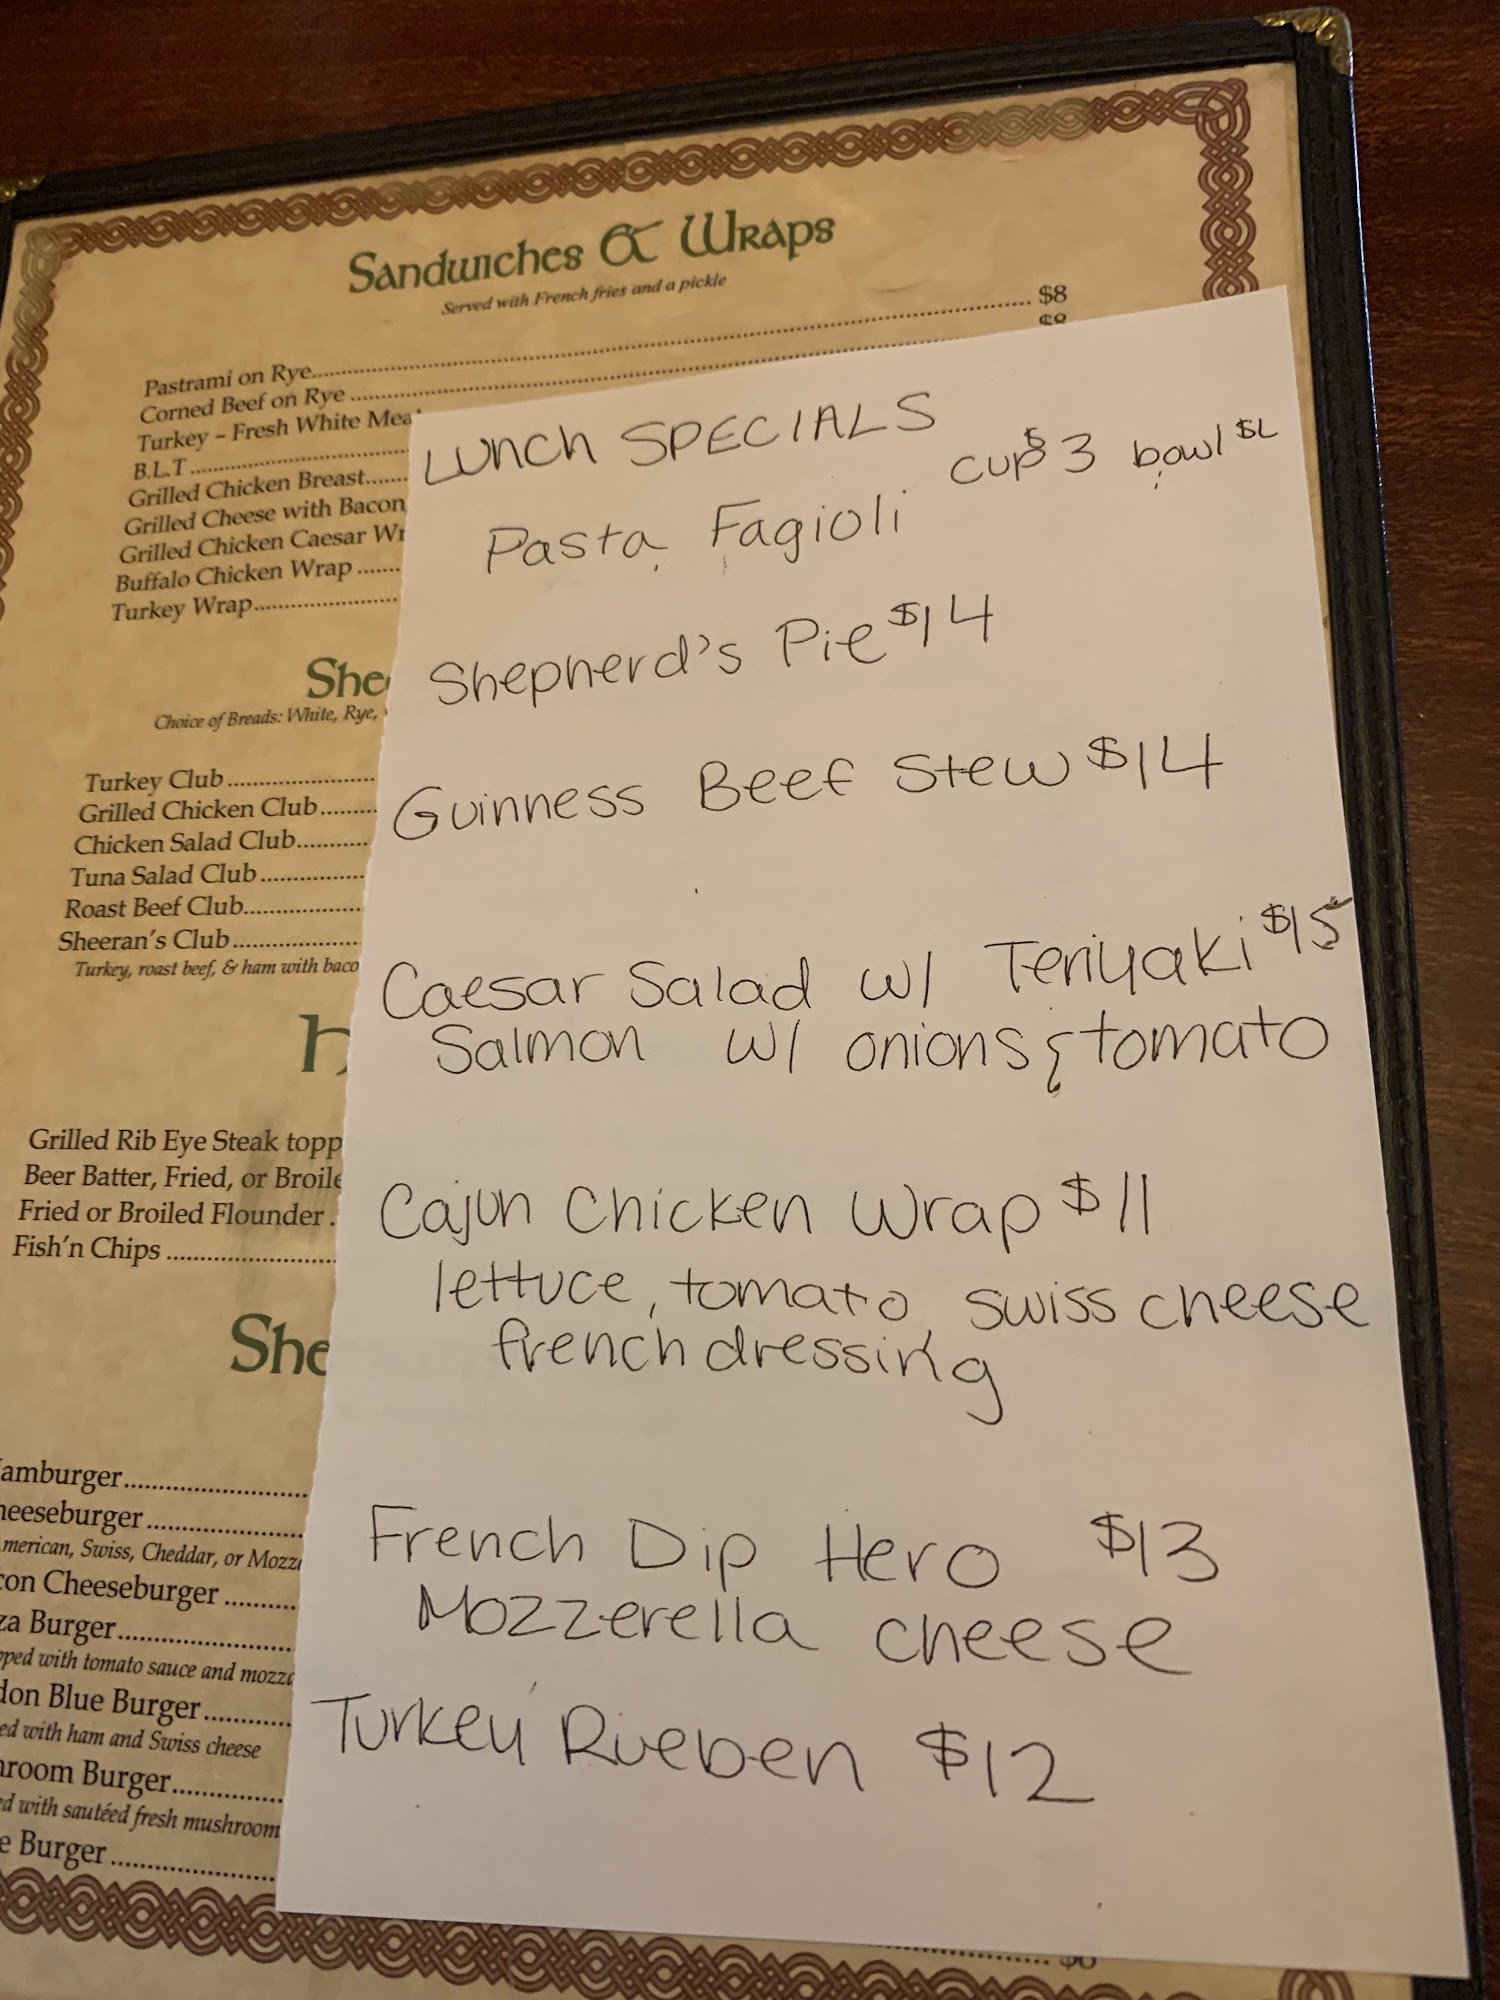 Sandwiches & Wraps
Served with French fries and a pickle
Pastrami on Rye.......... $8
Corned Beef on Rye .......... $8
Turkey – Fresh White Meat
B.L.T ..........
Grilled Chicken Breast.......
Grilled Cheese with Bacon,
Grilled Chicken Caesar Wr
Buffalo Chicken Wrap ......
Turkey Wrap..........
Shee
Choice of Breads: White, Rye,
Turkey Club ..........
Grilled Chicken Club ........
Chicken Salad Club..........
Tuna Salad Club ..........
Roast Beef Club..........
Sheeran's Club ..........
Turkey, roast beef, & ham with baco
Grilled Rib Eye Steak topp
Beer Batter, Fried, or Broile
Fried or Broiled Flounder .
Fish'n Chips ..........
She
amburger..........
heeseburger ..........
merican, Swiss, Cheddar, or Mozza
con Cheeseburger ..........
za Burger..........
pped with tomato sauce and mozza
don Blue Burger..........
ed with ham and Swiss cheese
hroom Burger..........
ed with sautéed fresh mushroom
e Burger ..........
LUNCH SPECIALS
cup $3 bowl
Pasta Fagioli
Shepherd's Pie $14
Guinness Beef Stew $14
Caesar Salad w/ Teriyaki $15
Salmon w/ onions & tomato
Cajun Chicken Wrap $11
lettuce, tomato, swiss cheese
french dressing
French Dip Hero $13
Mozzerella cheese
Turkey Rueben $12